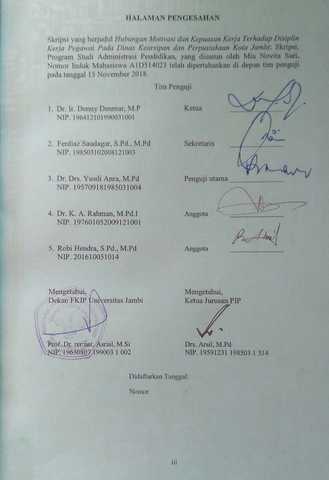 HALAMAN PENGESAHAN
Skripsi yang berjudul Hubungan Motivasi dan Kepuasan Kerja Terhadap Disiplin
Kerja Pegawai Pada Dinas Kearsipan dan Perpustakaan Kota Jambi. Skripsi,
Program Studi Administrasi Pendidikan, yang disusun oleh Mia Novita Sari,
Nomor Induk Mahasiswa A1D514023 telah dipertahankan di depan tim penguji
pada tanggal 15 November 2018.
Tim Penguji
1. Dr. Ir. Donny Denmar, M.P Ketua
NIP. 196412101990031001
2. Ferdiaz Saudagar, S.Pd., M.Pd Sekretaris
NIP. 198503102008121003
3. Dr. Drs. Yusdi Anra, M.Pd Penguji utama
NIP. 195709181985031004
4. Dr. K. A. Rahman, M.Pd.I Anggota
NIP. 197601052009121001
5. Robi Hendra, S.Pd., M.Pd Anggota
NIP. 201610051014
Mengetahui, Mengetahui,
Dekan FKIP Universitas Jambi Ketua Jurusan PIP
Prof. Dr. Asrial, M.Si Drs. Arsil, M.Pd
NIP. 199003 1 002 NIP. 19591231 198503 1 514
Didaftarkan Tanggal:
Nomor
iii